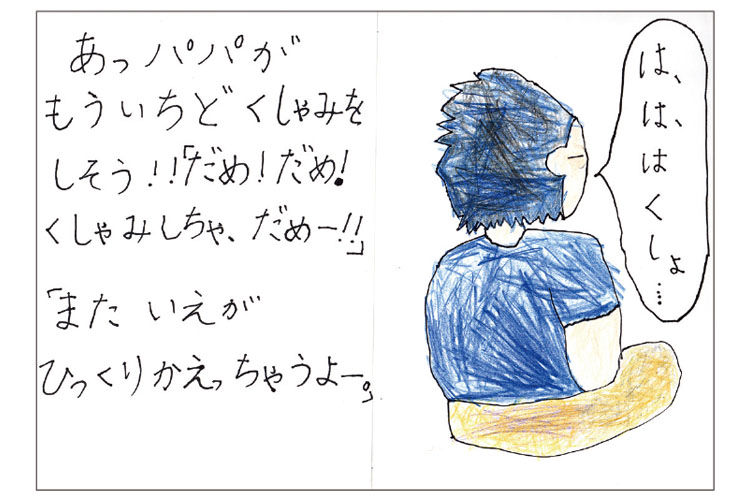 あっパパが
もういちどくしゃみを
しそう!!「だめ!だめ!
くしゃみしちゃ、だめー!!」
「また いえが
ひっくりかえっちゃうよー。」
は、は、はくしょ…